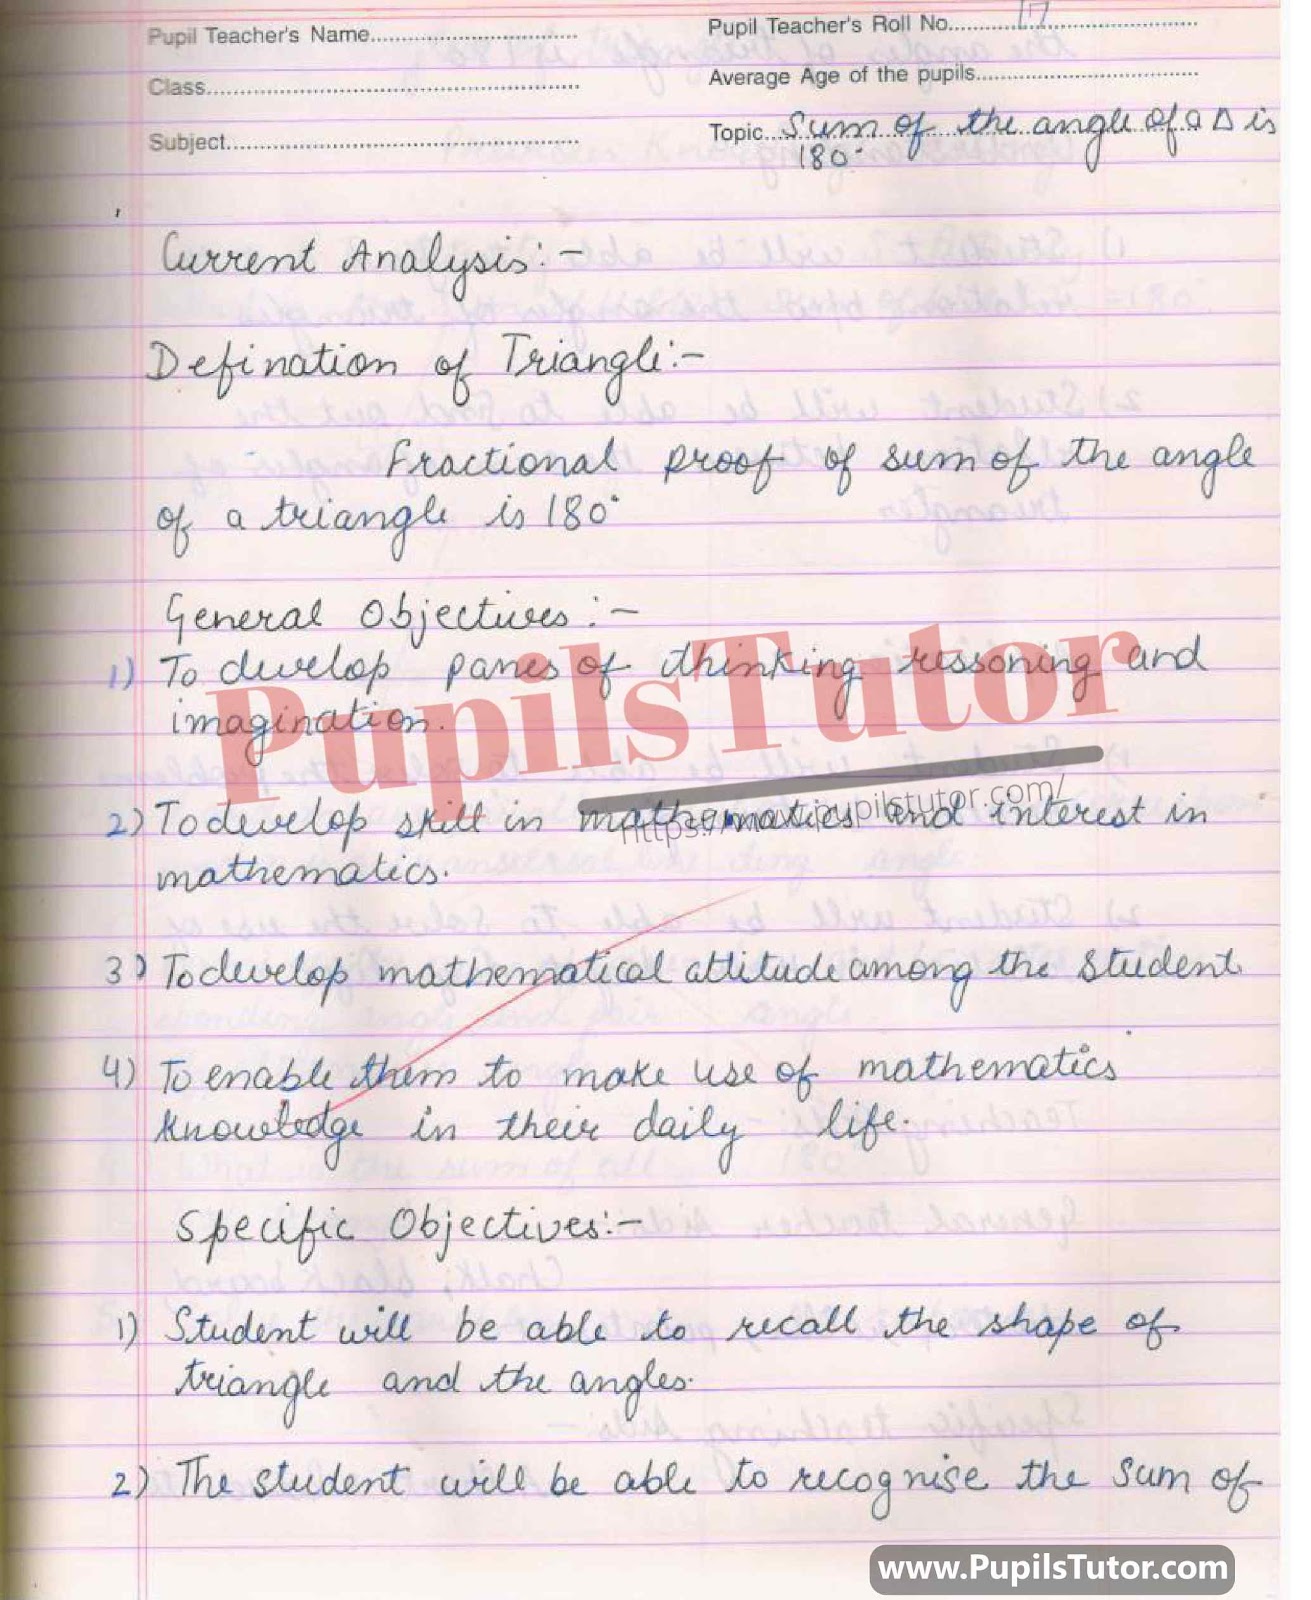 Pupil Teacher's Name
Pupil Teacher's Roll No. 17
Class
Average Age of the pupils
Subject
Topic Sum of the angle of a Δ is
180°
Current Analysis:-
Defination of Triangle:-
Fractional proof of sum of the angle
of a triangle is 180°
General Objectives:-
1) To develop panes of thinking ressoning and
imagination.
2) To develop skill in mathematics and interest in
mathematics.
3) To develop mathematical attitude among the student
4) To enable them to make use of mathematics
knowledge in their daily life.
Specific Objectives:-
1) Student will be able to recall the shape of
triangle and the angles.
2) The student will be able to recognise the sum of
PupilsTutor
https://www.pupilstutor.com/
www.PupilsTutor.com